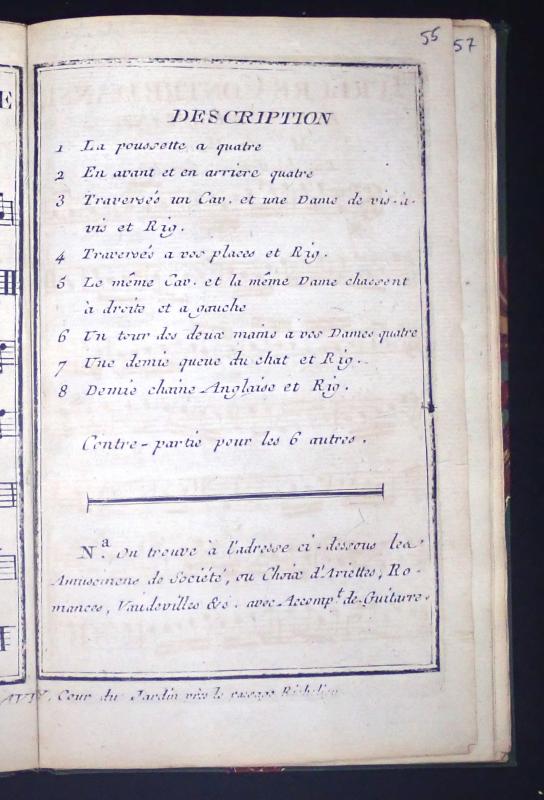 55
57
E
DESCRIPTION
1 La poussette a quatre
2 En avant et en arriere quatre
3 Traversés un Cav. et une Dame de vis-à-
vis et Rig.
4 Traversés a vos places et Rig.
5 Le même Cav. et la même Dame chassent
à droite et a gauche
6 Un tour des deux mains a vos Dames quatre
7 Une demie queue du chat et Rig.
8 Demie chaine Anglaise et Rig.
Contre-partie pour les 6 autres.
N.a On trouve à l'adresse ci-dessous les
Amusemens de Société, ou Choix d'Ariettes, Ro-
mances, Vaudevilles &c. avec Accomp.t de Guitarre.
Cour du Jardin près le passage Richelieu